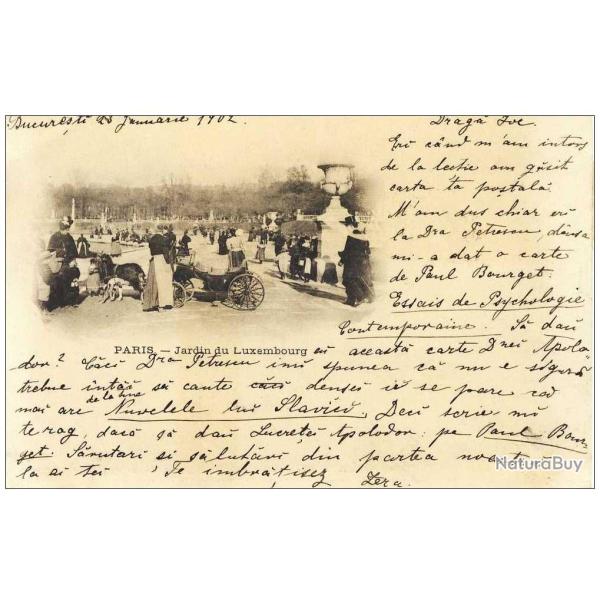 București 23 Ianuarie 1902.
Dragă Zoe.
Eri când m'am intors
de la lectie am găsit
carta ta postală.
M'am dus chiar eri
la Dra Petrescu, dânsa
mi-a dat o carte
de Paul Bourget.
Essais de Psychologie
Contemporaine. Să dau
PARIS. — Jardin du Luxembourg
eu această carte Dnei Apolo-
dor? Căci Dra Petrescu îmi spunea că nu e sigură
trebue întâi să caute căci densei i se pare că
de la tine
mai are Nuvelele lui Slavici, Deci scrie mi
te rog, dacă să dau Lucreției Apolodor: pe Paul Bour-
get. Sărutări si salutări din partea noastră
la ai tei Te îmbrățișez
NaturaBuy